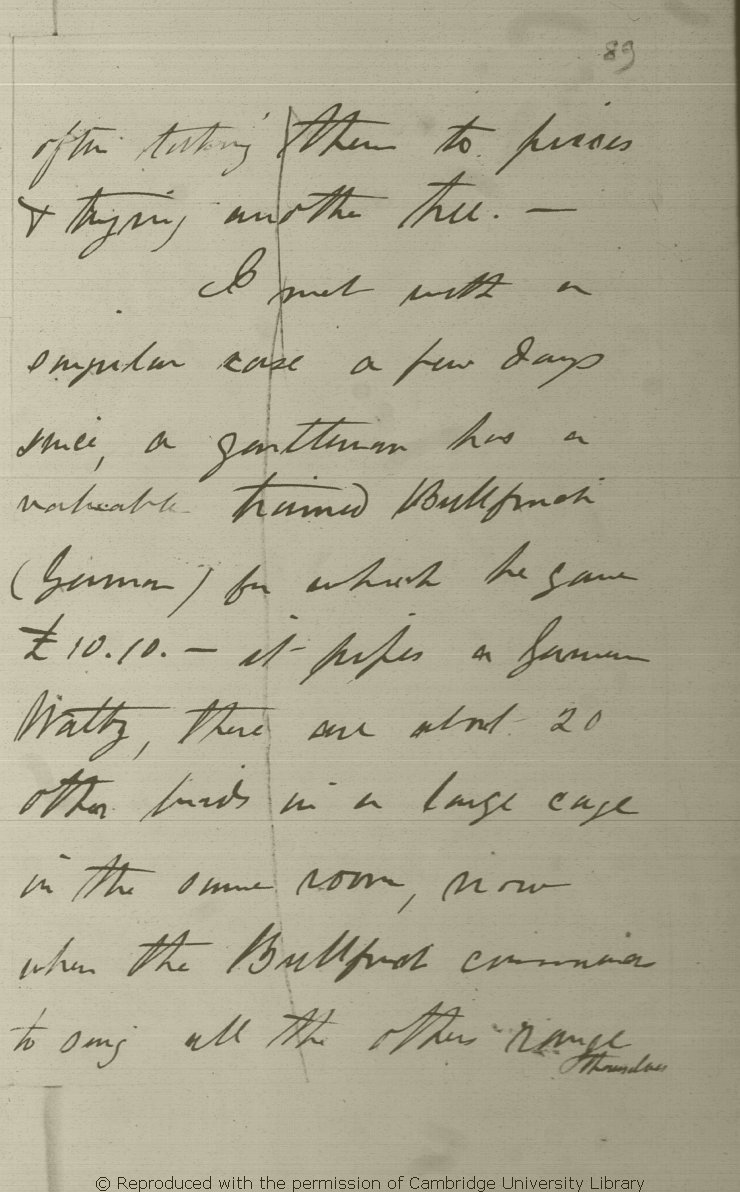 89
often taking them to pieces
& trying another tree. —
I met with a
singular case a few days
since, a gentleman has a
valuable trained Bullfinch
(German) for which he gave
£10.10. — it pipes a German
Waltz, there are about 20
other birds in a large cage
in the same room, now
when the Bullfinch commences
to sing all the others range
themselves
© Reproduced with the permission of Cambridge University Library